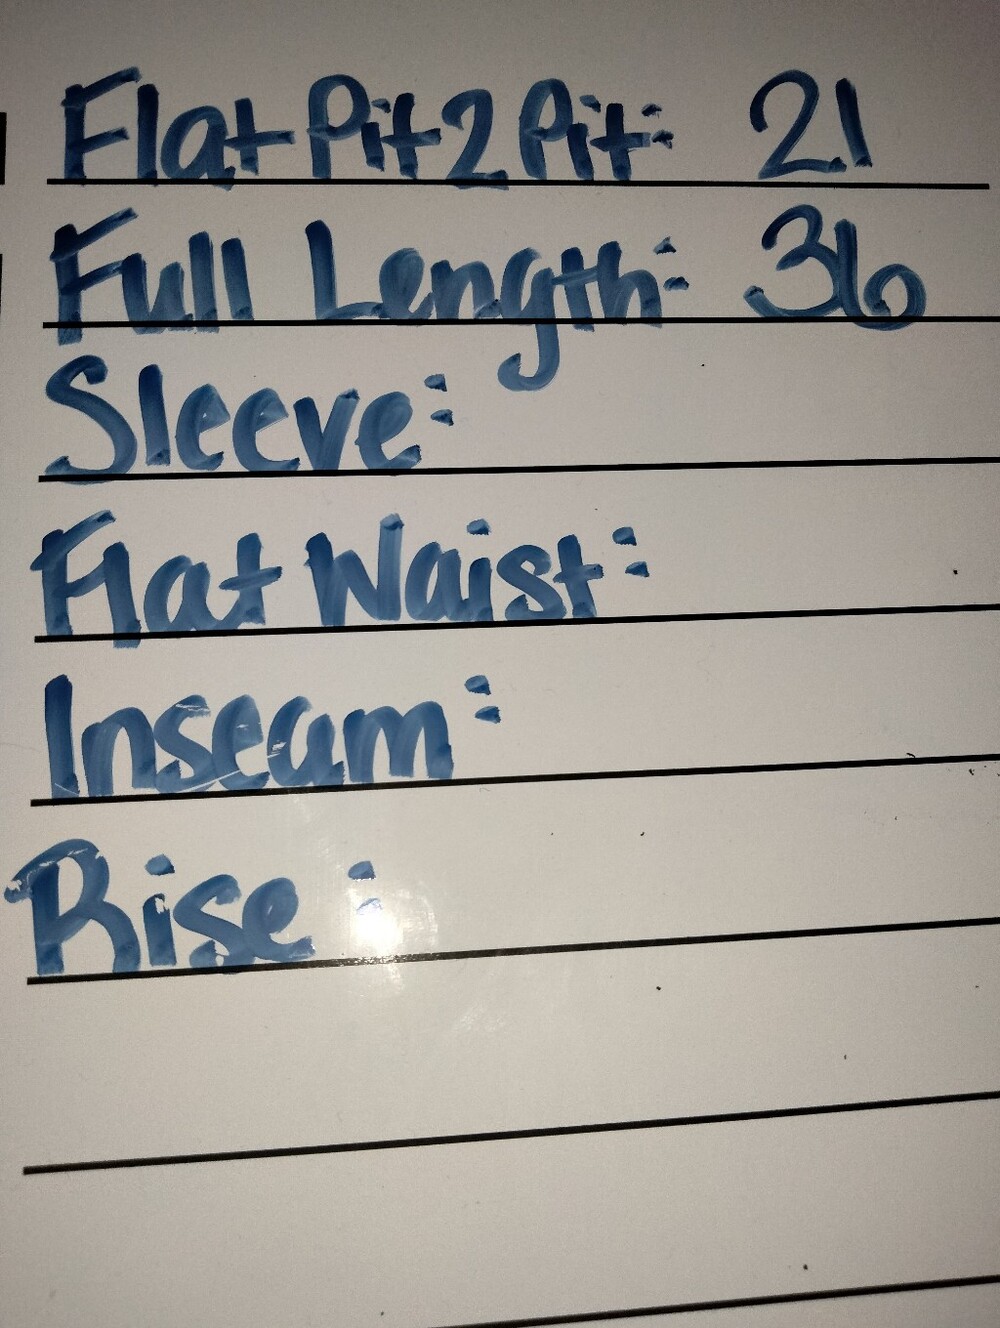 Flat Pit 2 Pit: 21
Full Length: 36
Sleeve:
Flat Waist:
Inseam:
Rise :